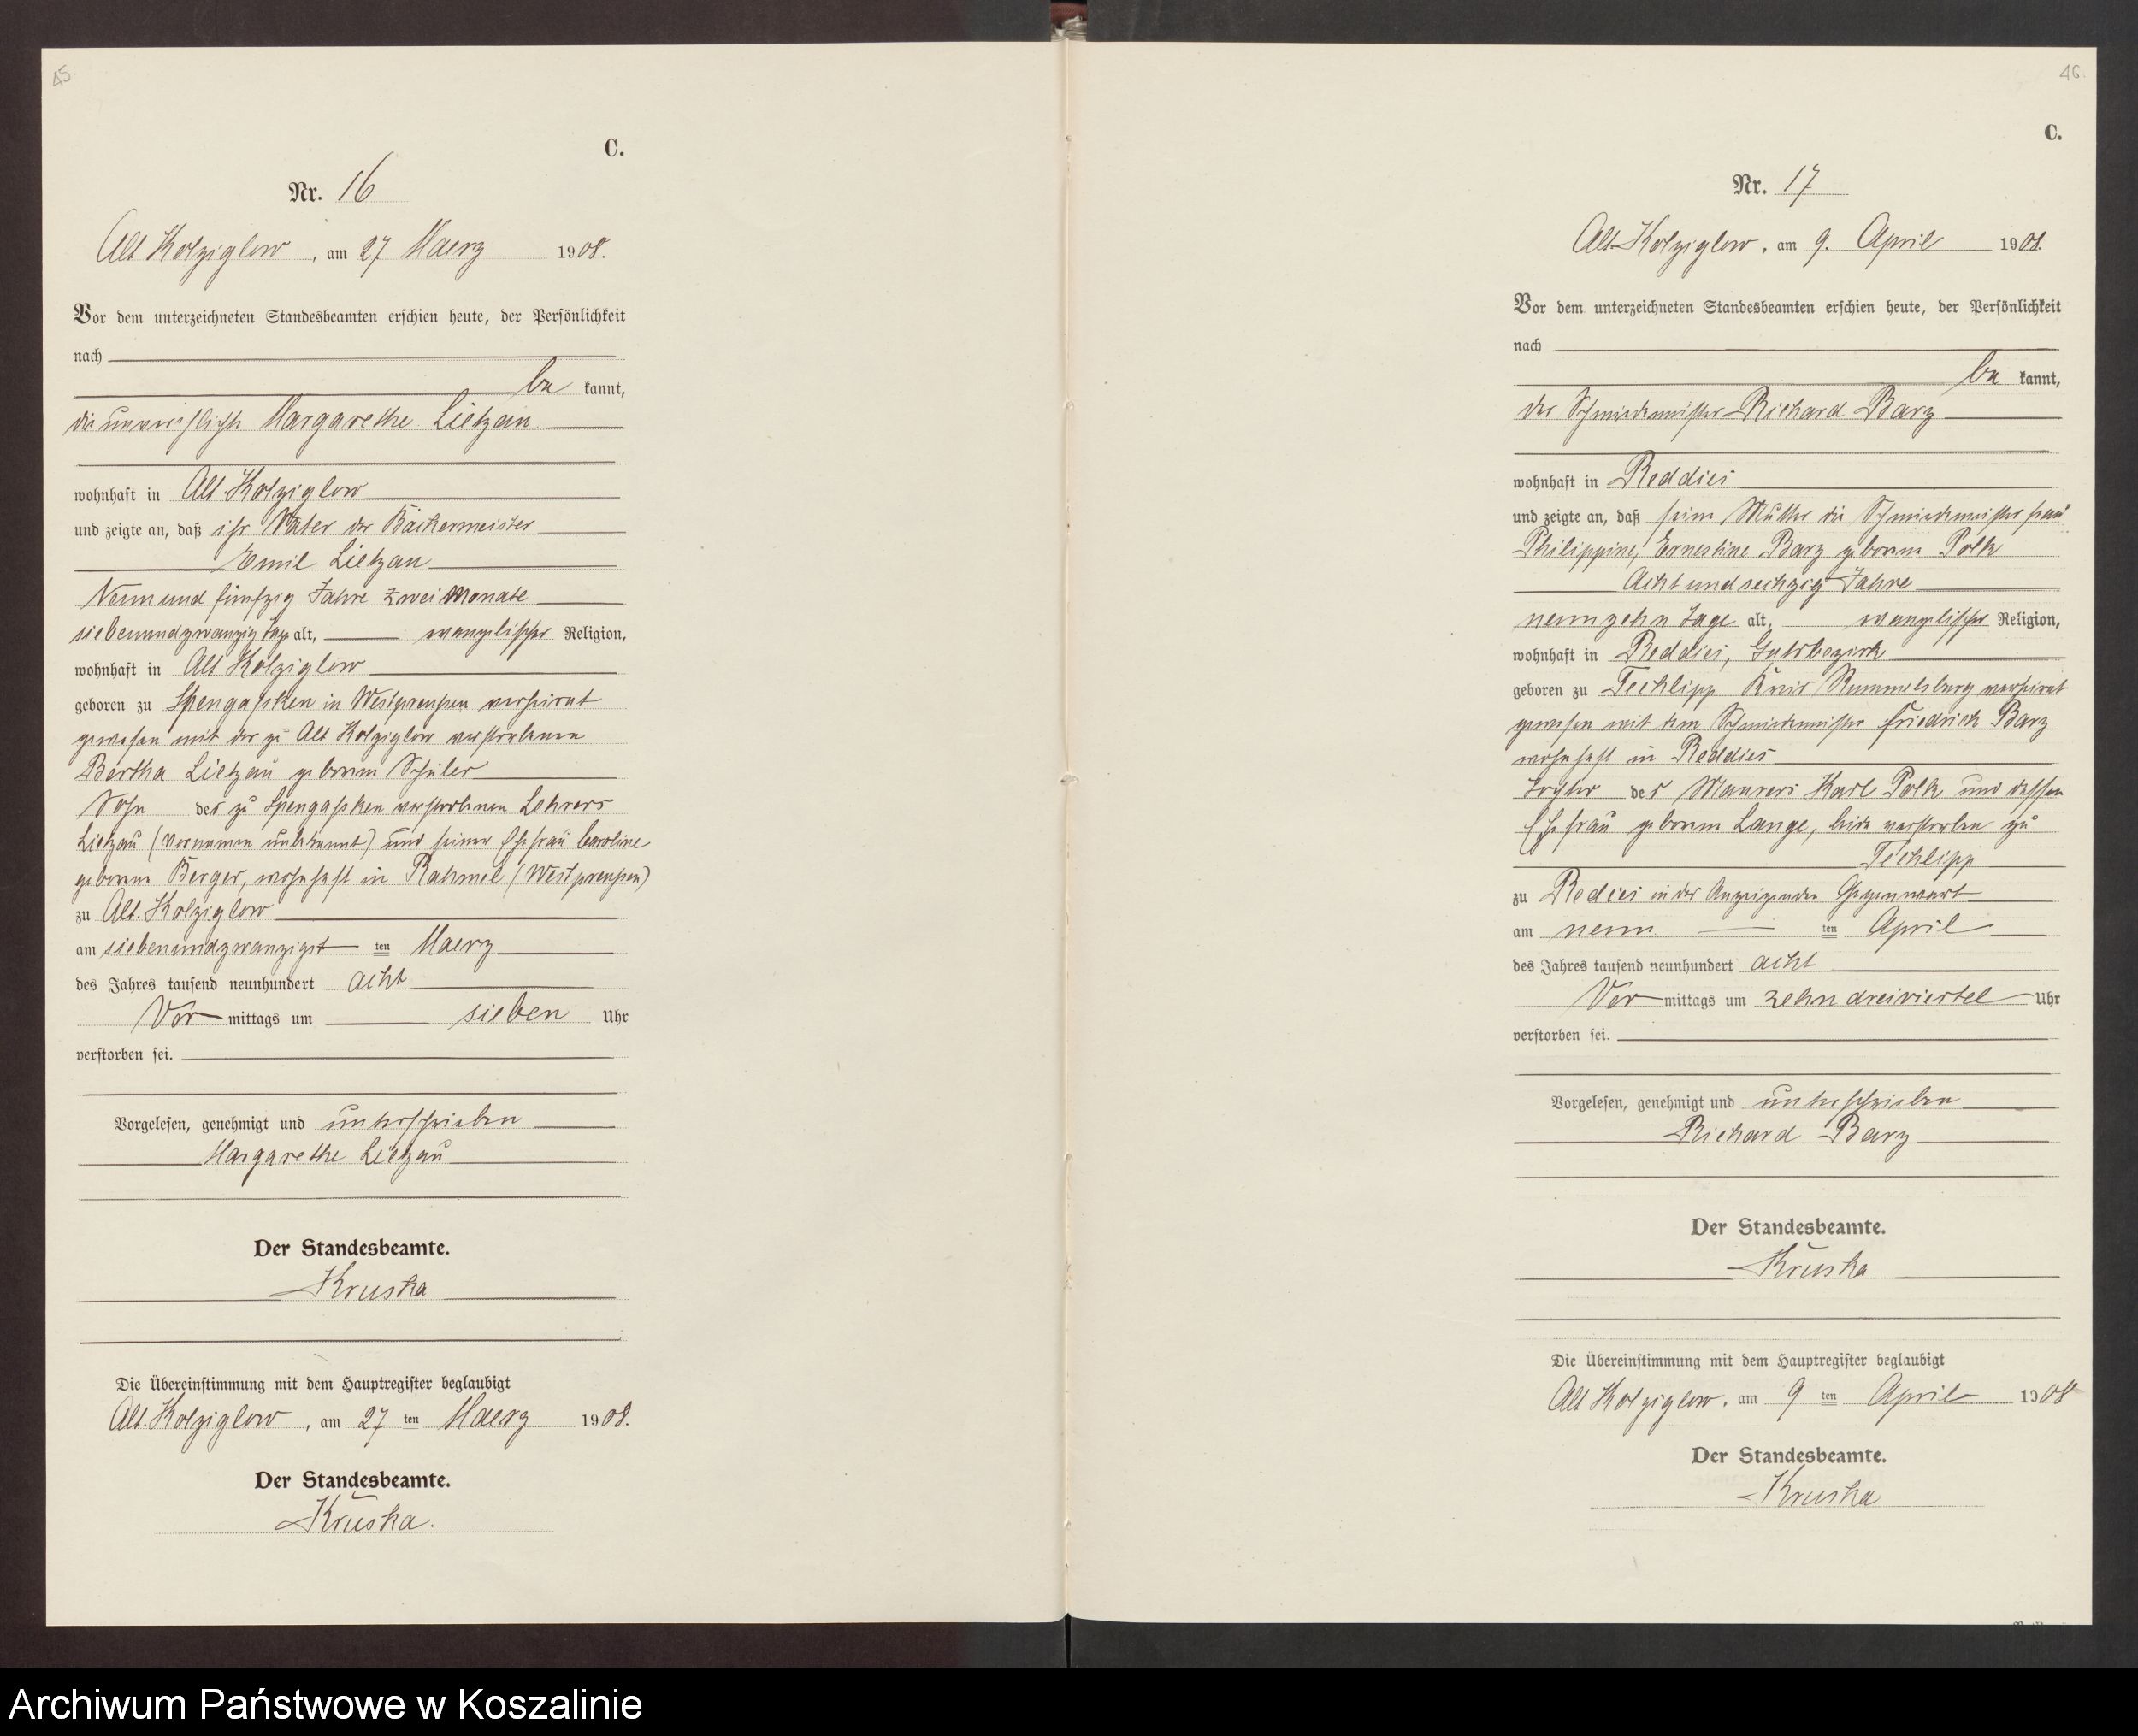 45.
C.
Nr. 16
Alt Kolziglow, am 27 Maerz 1908.
Vor dem unterzeichneten Standesbeamten erschien heute, der Persönlichkeit
nach
be kannt,
die unverehelichte Margarethe Lietzau
wohnhaft in Alt. Kolziglow
und zeigte an, daß ihr Vater der Bäckermeister
Emil Lietzau
Neunundfünfzig Jahre zwei Monate
siebenundzwanzig Tage alt, evangelischer Religion,
wohnhaft in Alt Kolziglow
geboren zu Spengafsken in Westpreußen verheirat
gewesen mit der zu Alt Kolziglow verstorbenen
Bertha Lietzau geborenen Schüler
Sohn des zu Spengafsken verstorbenen Lehrers
Lietzau (Vornamen unbekannt) und seiner Ehefrau Caroline
geborenen Berger, wohnhaft in Rahmel (Westpreußen)
zu Alt. Kolziglow
am siebenundzwanzigst ten Maerz
des Jahres tausend neunhundert acht
Vor mittags um sieben Uhr
verstorben sei.
Vorgelesen, genehmigt und unterschrieben
Margarethe Lietzau
Der Standesbeamte.
Kruska
Die Übereinstimmung mit dem Hauptregister beglaubigt
Alt. Kolziglow, am 27 ten Maerz 1908.
Der Standesbeamte.
Kruska.
46.
C.
Nr. 17
Alt-Kolziglow, am 9. April 1908.
Vor dem unterzeichneten Standesbeamten erschien heute, der Persönlichkeit
nach
be kannt,
der Schmiedemeister Richard Barz
wohnhaft in Reddies
und zeigte an, daß seine Mutter die Schmiedemeisterfrau
Philippine, Ernestine Barz geborene Polk
Achtundsechzig Jahre
neunzehn Tage alt, evangelischer Religion,
wohnhaft in Reddies, Gutsbezirk
geboren zu Techlipp Kreis Rummelsburg verheirat
gewesen mit dem Schmiedemeister Friedrich Barz
wohnhaft in Reddies
Tochter des Maurers Karl Polk und dessen
Ehefrau geborenen Lange, beide verstorben zu
Techlipp
zu Reddies in der Anzeigenden Gegenwart
am neun ten April
des Jahres tausend neunhundert acht
Vor mittags um zehn dreiviertel Uhr
verstorben sei.
Vorgelesen, genehmigt und unterschrieben
Richard Barz
Der Standesbeamte.
Kruska
Die Übereinstimmung mit dem Hauptregister beglaubigt
Alt Kolziglow, am 9 ten April 1908
Der Standesbeamte.
Kruska
Archiwum Państwowe w Koszalinie